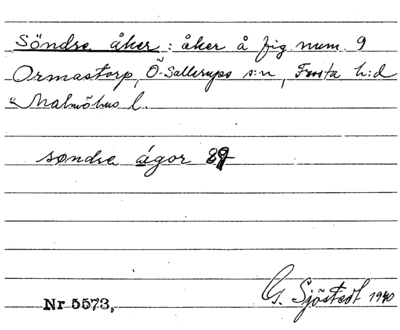 Söndre åker: åker å fig. num. 9
Ormastorp, Ö. Sallerups s:n, Frosta h:d
Malmöhus l.
søndre ågor 89
Nr 5573,
G. Sjöstedt 1940